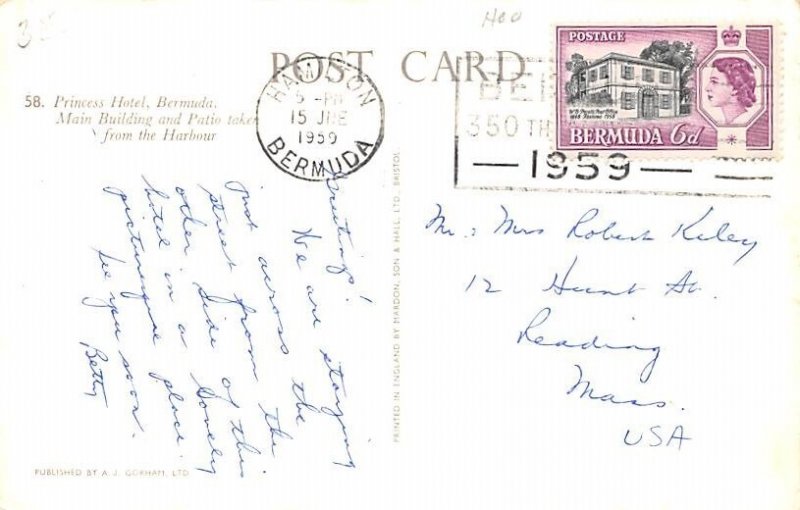 3
HCO
POST CARD
58. Princess Hotel, Bermuda.
Main Building and Patio taken
from the Harbour
HAMILTON
5 - PM
15 JNE
1959
BERMUDA
BER
350 TH
— 1959 —
POSTAGE
BERMUDA 6d
Greetings!
We are staying
just across the
street from the
other side of this
hotel in a lovely
picturesque place.
See you soon.
Betty
PRINTED IN ENGLAND BY MARDON, SON & HALL, LTD., BRISTOL.
Mr. : Mrs Robert Kiley
12 Hunt St.
Reading
Mass.
USA
PUBLISHED BY A. J. GORHAM, LTD.